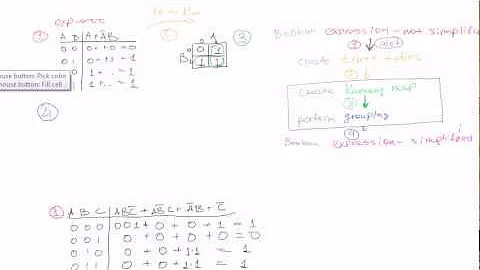 A B | A + ĀB
0 0 | 0 + 1.0 = 0
0 1 | 0 + 1.1 = 1
1 0 | 1 + .. = 1
1 1 | 1 + .. = 1
③
A
0 1
B
0 1
1 1
④
ouse button: Pick color
mouse button: Fill cell
Boolean expression - not simplified
①
create truth tables
②
create Karnaug map
③
perform grouping
④
Boolean expression - simplified
① A B C | ABC̄ + ĀBC + ĀB + C̄
0 0 0 | 001 + 0 + 0 + 1 = 1
0 0 1 | 0 + 0 + 0 + 0 = 0
0 1 0 | 0 + 0 + 1.1 = 1
0 1 1 | 0 + 0 + 1.1 = 1